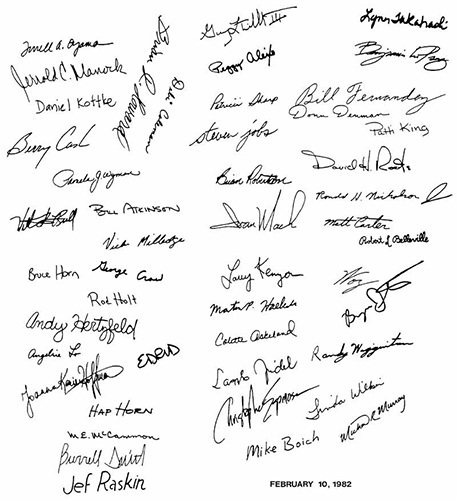 Peggy Alexio
Lynn Takahashi
Terrell A. Oyama
Jerrold C. Manock
Daniel Kottke
Berry Cash
Pamela J. Wyman
Bill Atkinson
Vicki Milledge
Bruce Horn
George Crow
Rod Holt
Andy Hertzfeld
Angeline Lo
Joanna Karin Hoffman
Hap Horn
M.E. McCammon
Burrell Smith
Jef Raskin
Patricia Sharp
steven jobs
Bill Fernandez
Donn Denman
Patti King
Brian Robertson
David H. Roots
Ronald H. Nicholson Jr
Matt Carter
Robert L. Belleville
Larry Kenyon
Woz
Martin P. Haeberli
Colette Askeland
Randy Wigginton
Christopher Espinosa
Linda Wilkin
Mike Boich
FEBRUARY 10, 1982